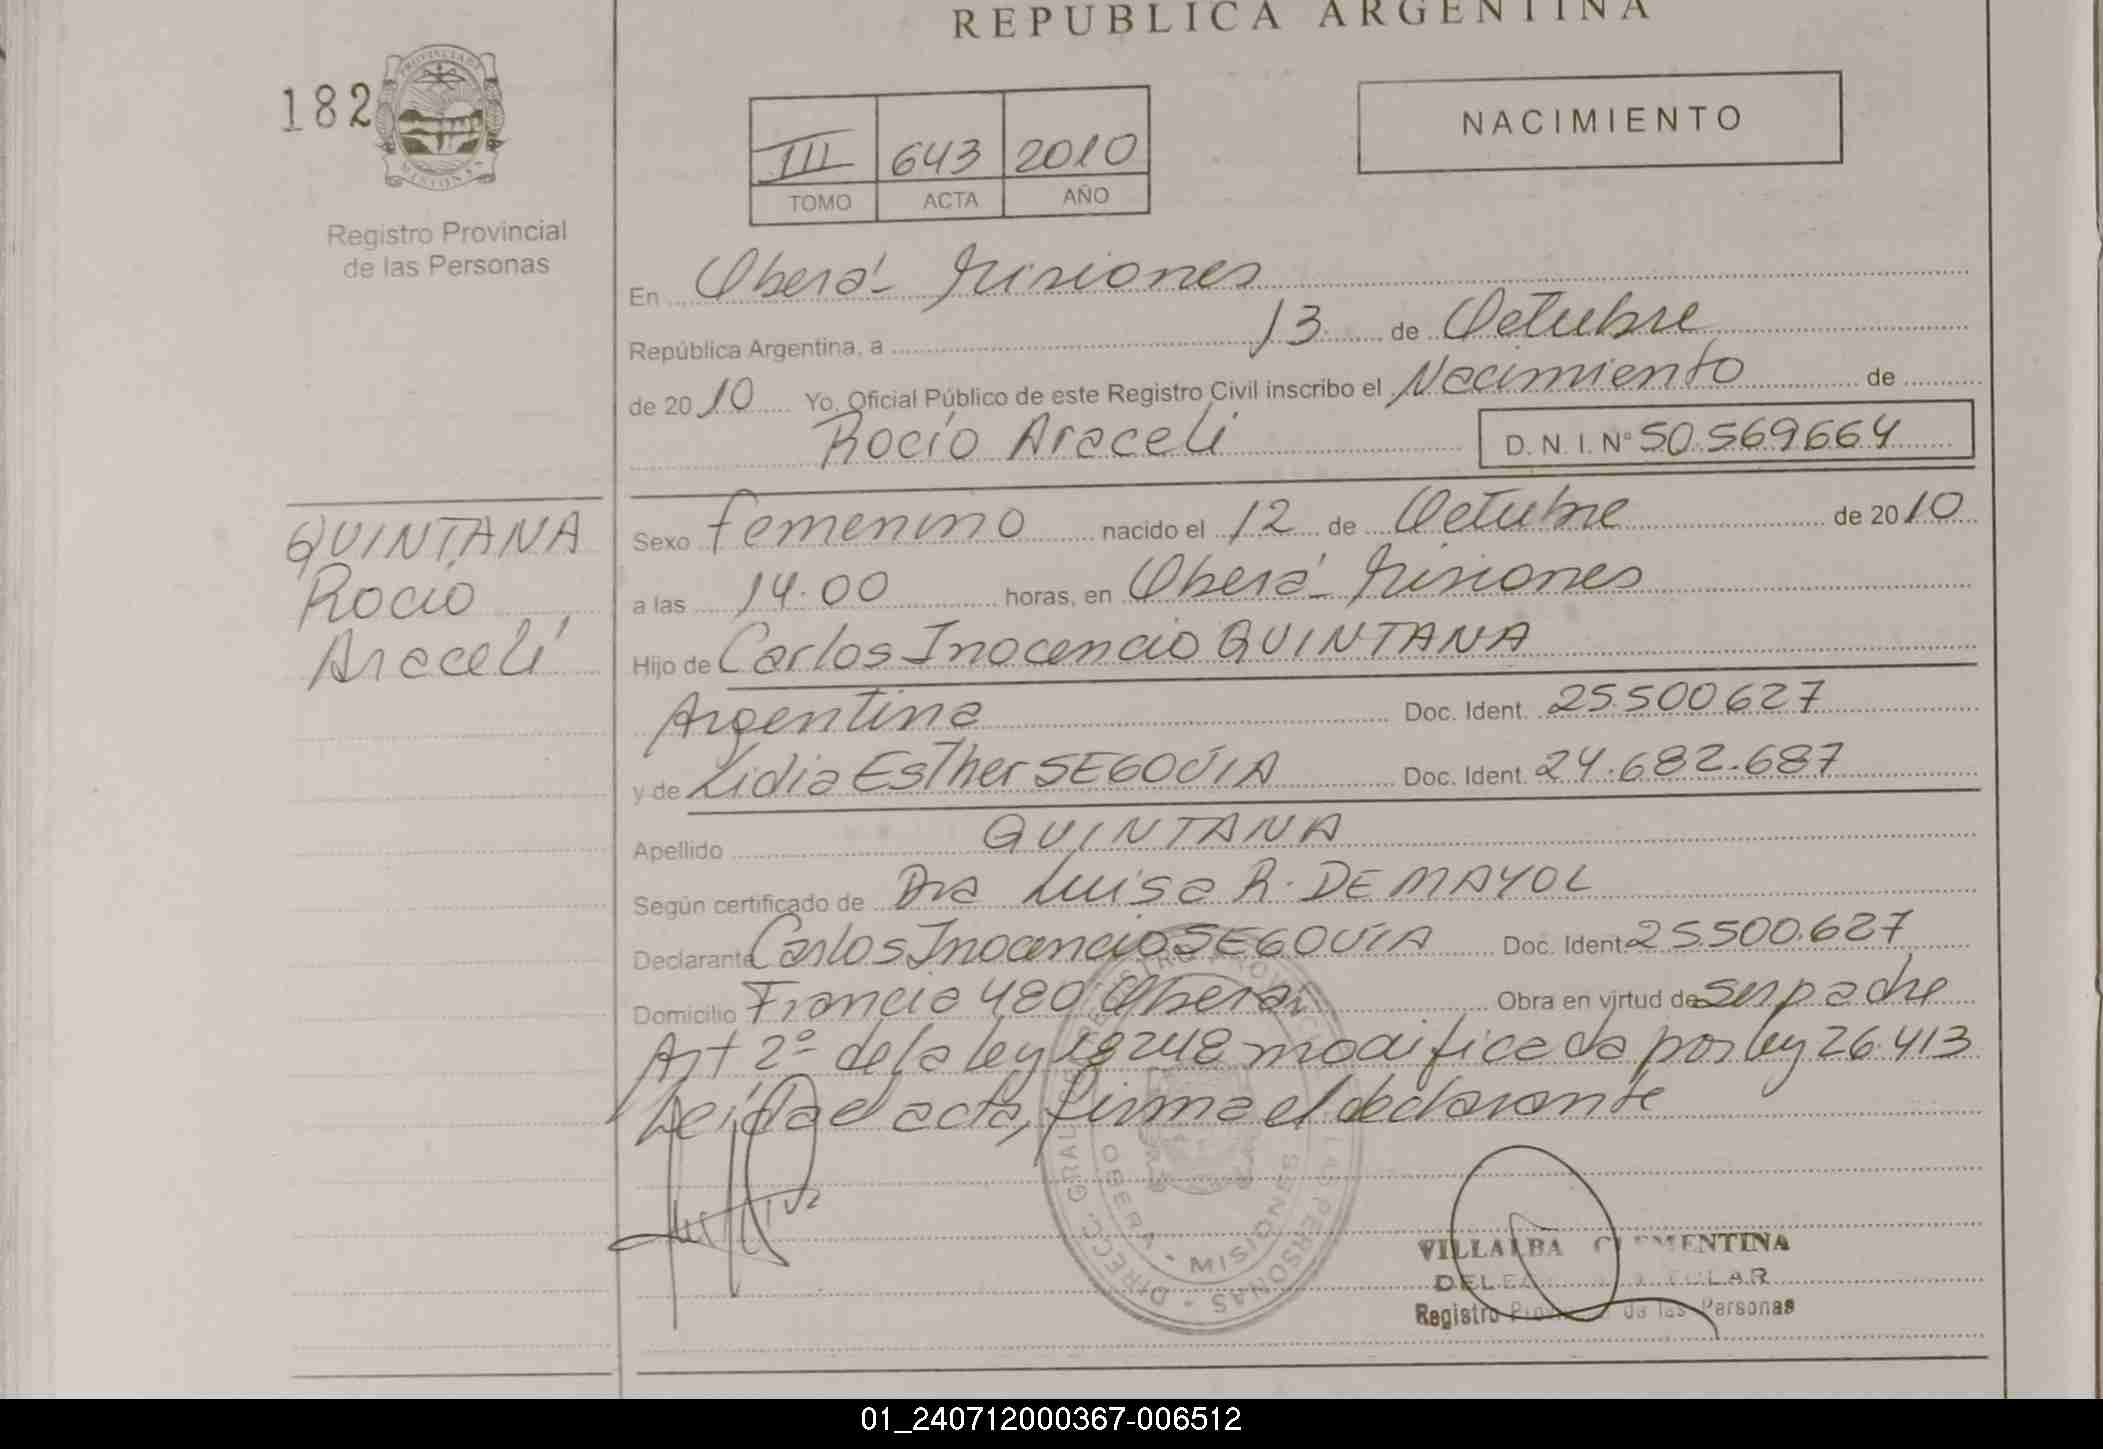 REPUBLICA ARGENTINA
182
PROVINCIA DE MISIONES
Registro Provincial
de las Personas
III 643 2010
TOMO ACTA AÑO
NACIMIENTO
En Oberá - Misiones
República Argentina, a 13 de Octubre
de 2010 Yo, Oficial Público de este Registro Civil inscribo el Nacimiento de
Rocío Araceli D. N. I. Nº 50.569664
QUINTANA
Rocío
Araceli
Sexo Femenino nacido el 12 de Octubre de 2010
a las 14.00 horas, en Oberá - Misiones
Hijo de Carlos Inocencio QUINTANA
Argentina Doc. Ident. 25.500627
y de Lidia Esther SEGOVIA Doc. Ident. 24.682.687
Apellido QUINTANA
Según certificado de Dra Luisa R. DE MAYOL
Declarante Carlos Inocencio SEGOVIA Doc. Ident. 25500.627
Domicilio Francia 480 Oberá Obra en virtud de ser padre
Art 2º de la ley 18248 modificada por ley 26.413
Leída el acta, firma el declarante
DIRECC. GRAL. REGISTRO PROVINCIAL PERSONAS
OBERA - MISIONES
VILLALBA CLEMENTINA
Registro de las Personas
01_240712000367-006512